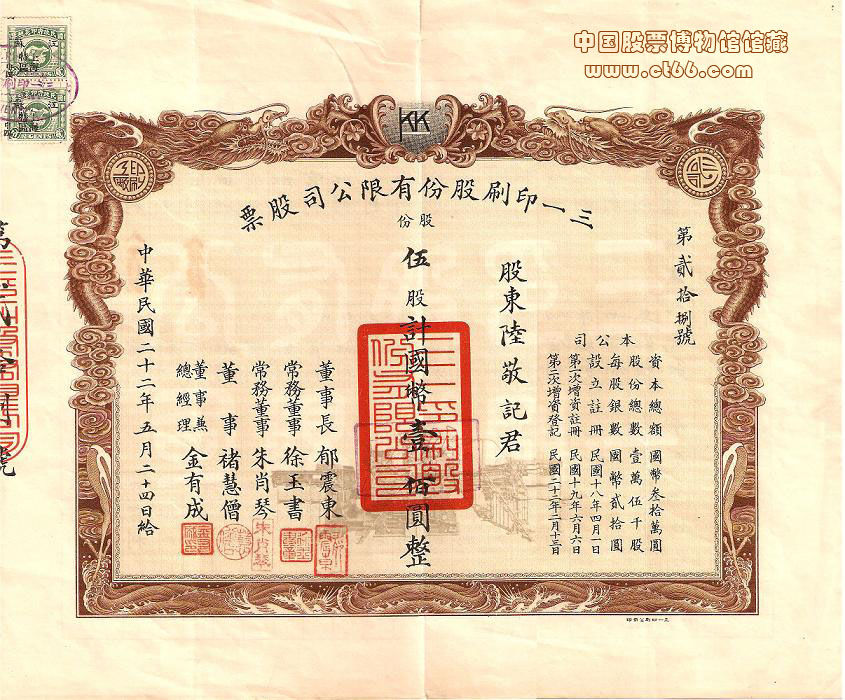 中国股票博物馆馆藏
www.ct66.com
江蘇
上海
江蘇
上海
KK
三一
印刷
三一印刷股份有限公司股票
第貳拾捌號
本公司
資本總額 國幣叁拾萬圓
股份總數 壹萬伍千股
每股銀數 國幣貳拾圓
設立註冊 民國十八年四月一日
第一次增資註冊 民國十九年六月六日
第二次增資登記 民國二十二年二月十三日
股東陸敬記君
股份
伍股計國幣壹佰圓整
董事長 郁震東
常務董事 徐玉書
常務董事 朱肖琴
董事 褚慧僧
董事兼總經理 金有成
中華民國二十二年五月二十四日給
三一印刷股份有限公司
朱肖琴
三一印刷公司印